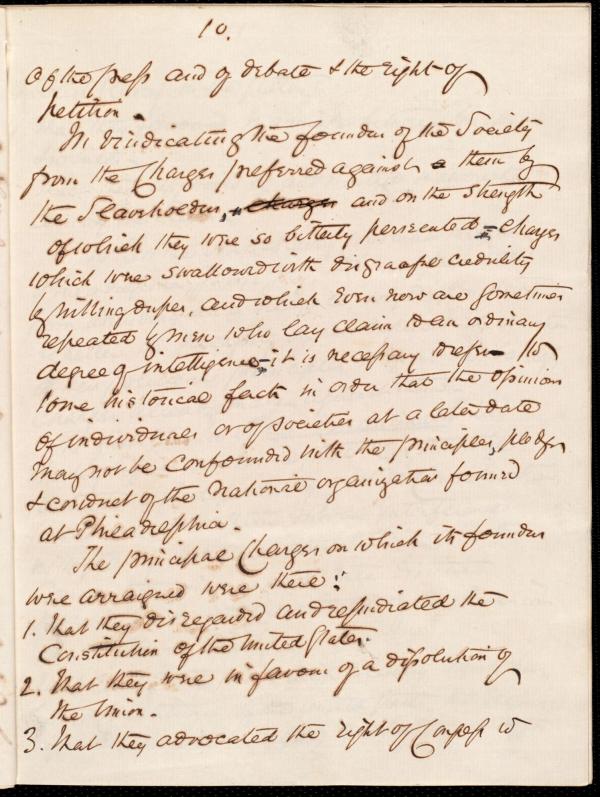 10.
of the press and of debate & the right of
petition.
In vindicating the founders of the Society
from the Charges preferred against them by
the Slaveholders, charges and on the strength
of which they were so bitterly persecuted – charges
which were swallowed with disgraceful credulity
by willing dupes, and which even now are sometimes
repeated by men who lay claim to an ordinary
degree of intelligence – it is necessary to refer to
some historical facts in order that the opinions
of individuals or of societies at a later date
may not be confounded with the principles, pledges
& conduct of the national organization formed
at Philadelphia.
The principal Charges on which its founders
were arraigned were these:
1. That they disregarded and repudiated the
Constitution of the United States.
2. That they were in favour of a dissolution of
the Union.
3. That they advocated the right of Congress to